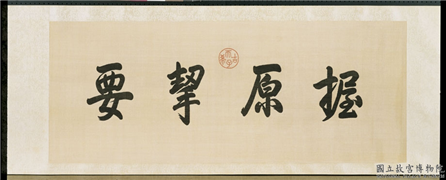 握原挈要
國立故宮博物院